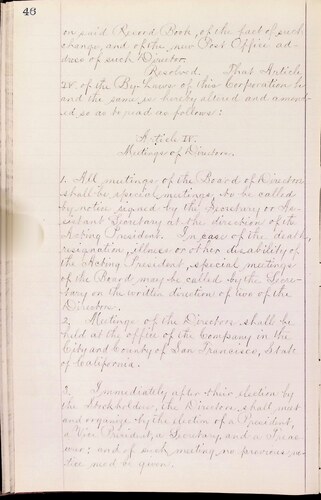 46
on said Record Book, of the fact of such
change, and of the new Post Office ad-
dress of such Director.
Resolved, That Article
IV. of the By-Laws of this Corporation be
and the same is hereby altered and amend-
ed so as to read as follows:
Article IV.
Meetings of Directors.
1. All meetings of the Board of Directors
shall be special meetings, to be called
by notice signed by the Secretary or As-
sistant Secretary at the direction of the
Acting President. In case of the death,
resignation, illness or other disability of
the Acting President, special meetings
of the Board may be called by the Secre-
tary on the written direction of two of the
Directors.
2. Meetings of the Directors shall be
held at the office of the Company in the
City and County of San Francisco, State
of California.
3. Immediately after their election by
the Stockholders, the Directors shall meet
and organize by the election of a President,
a Vice President, a Secretary, and a Treas-
urer; and of such meeting no previous no-
tice need be given.